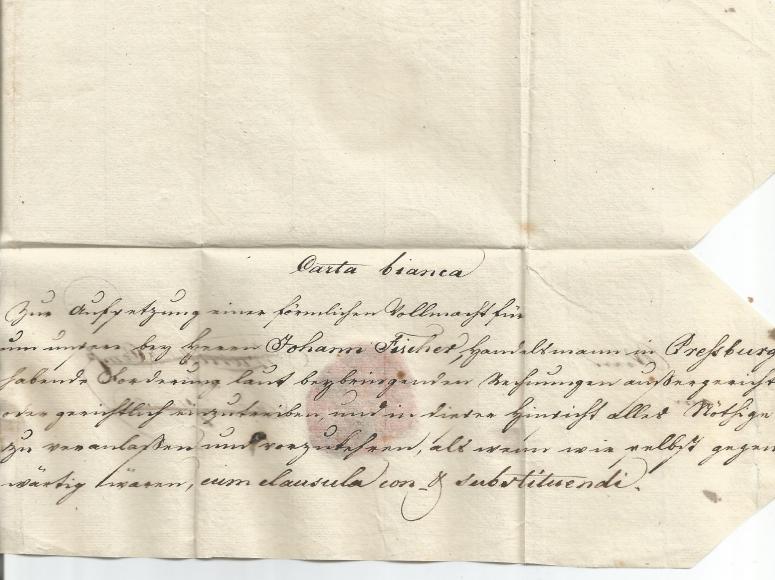 Carta bianca
Zur Aufsetzung einer förmlichen Vollmacht für
um unsere bey Herrn Johann Fischer, Handelsmann in Preßburg
habende Forderung laut beybringenden Rechnungen außergericht
oder gerichtlich einzutreiben, und in dieser Hinsicht alles Nöthige
zu veranlaßen und vorzukehren, als wenn wir selbst gegen
wärtig wären, cum clausula con & substituendi.